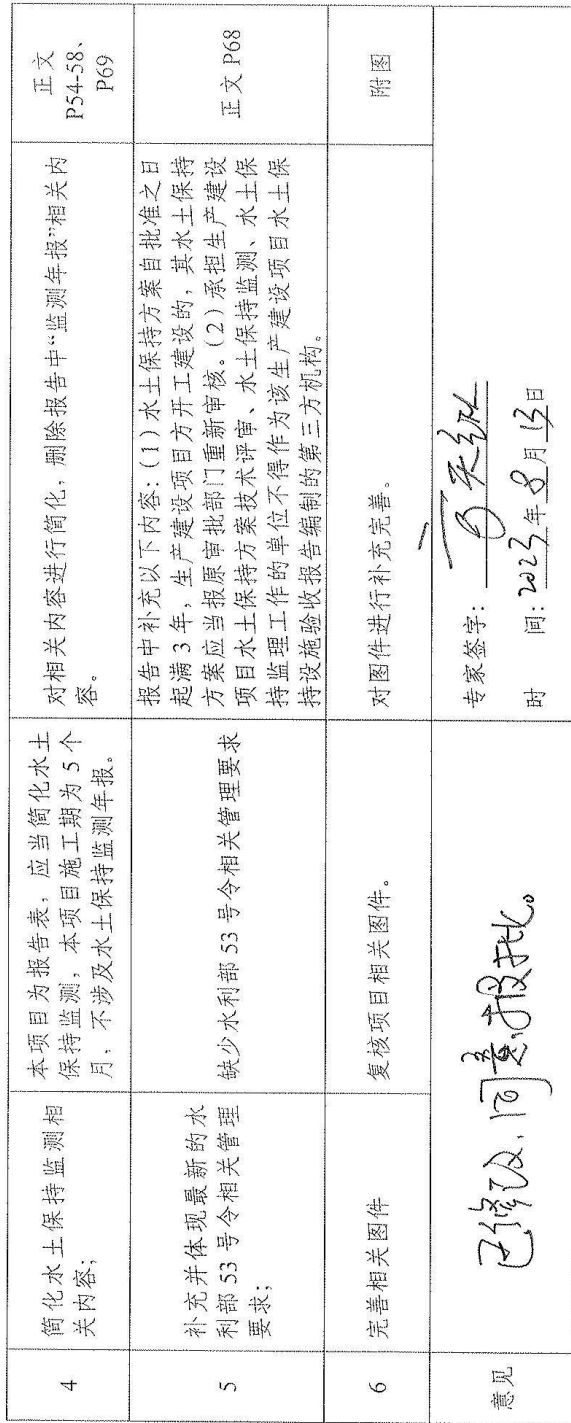 4
简化水土保持监测相
关内容；
本项目为报告表，应当简化水土
保持监测，本项目施工期为 5 个
月，不涉及水土保持监测年报。
对相关内容进行简化，删除报告中“监测年报”相关内
容。
正文
P54-58、
P69
5
补充并体现最新的水
利部 53 号令相关管理
要求；
缺少水利部 53 号令相关管理要求
报告中补充以下内容：（1）水土保持方案自批准之日
起满 3 年，生产建设项目方开工建设的，其水土保持
方案应当报原审批部门重新审核。（2）承担生产建设
项目水土保持方案技术评审、水土保持监测、水土保
持监理工作的单位不得作为该生产建设项目水土保
持设施验收报告编制的第三方机构。
正文 P68
6
完善相关图件
复核项目相关图件。
对图件进行补充完善。
附图
意见
已修改，同意报批。
专家签字：
时 间：2023年8月13日